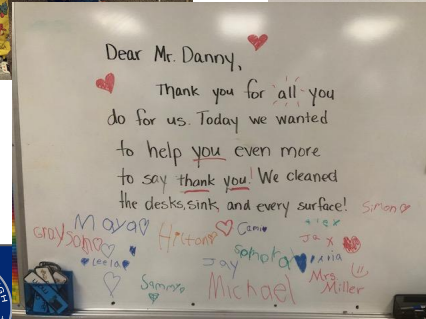 Dear Mr. Danny,
Thank you for all you
do for us. Today we wanted
to help you even more
to say thank you! We cleaned
the desks, sink and every surface!
Simon
Maya
Graysom
Hilton
Cami
Alex
Jax
Leela
Jay
Sammie
Michael
Mrs.
Miller
GH